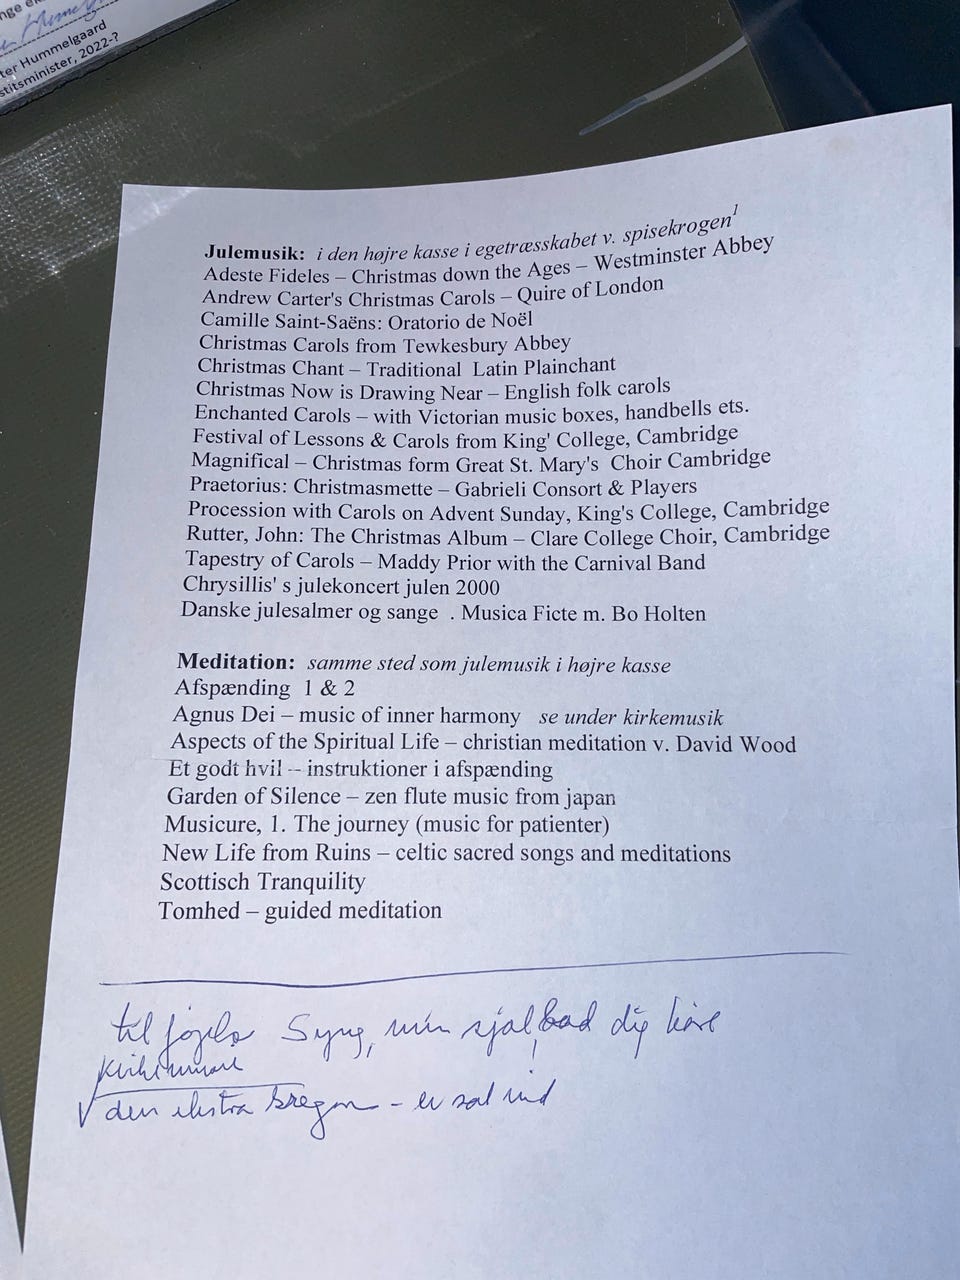 nge
ter Hummelgaard
stitsminister, 2022-?
Julemusik: i den højre kasse i egetræsskabet v. spisekrogen¹
Adeste Fideles – Christmas down the Ages – Westminster Abbey
Andrew Carter's Christmas Carols – Quire of London
Camille Saint-Saëns: Oratorio de Noël
Christmas Carols from Tewkesbury Abbey
Christmas Chant – Traditional Latin Plainchant
Christmas Now is Drawing Near – English folk carols
Enchanted Carols – with Victorian music boxes, handbells ets.
Festival of Lessons & Carols from King' College, Cambridge
Magnifical – Christmas form Great St. Mary's Choir Cambridge
Praetorius: Christmasmette – Gabrieli Consort & Players
Procession with Carols on Advent Sunday, King's College, Cambridge
Rutter, John: The Christmas Album – Clare College Choir, Cambridge
Tapestry of Carols – Maddy Prior with the Carnival Band
Chrysillis' s julekoncert julen 2000
Danske julesalmer og sange . Musica Ficte m. Bo Holten
Meditation: samme sted som julemusik i højre kasse
Afspænding 1 & 2
Agnus Dei – music of inner harmony se under kirkemusik
Aspects of the Spiritual Life – christian meditation v. David Wood
Et godt hvil -- instruktioner i afspænding
Garden of Silence – zen flute music from japan
Musicure, 1. The journey (music for patienter)
New Life from Ruins – celtic sacred songs and meditations
Scottisch Tranquility
Tomhed – guided meditation
til Syng, min sjal, dig
den ekstra - er sat ind